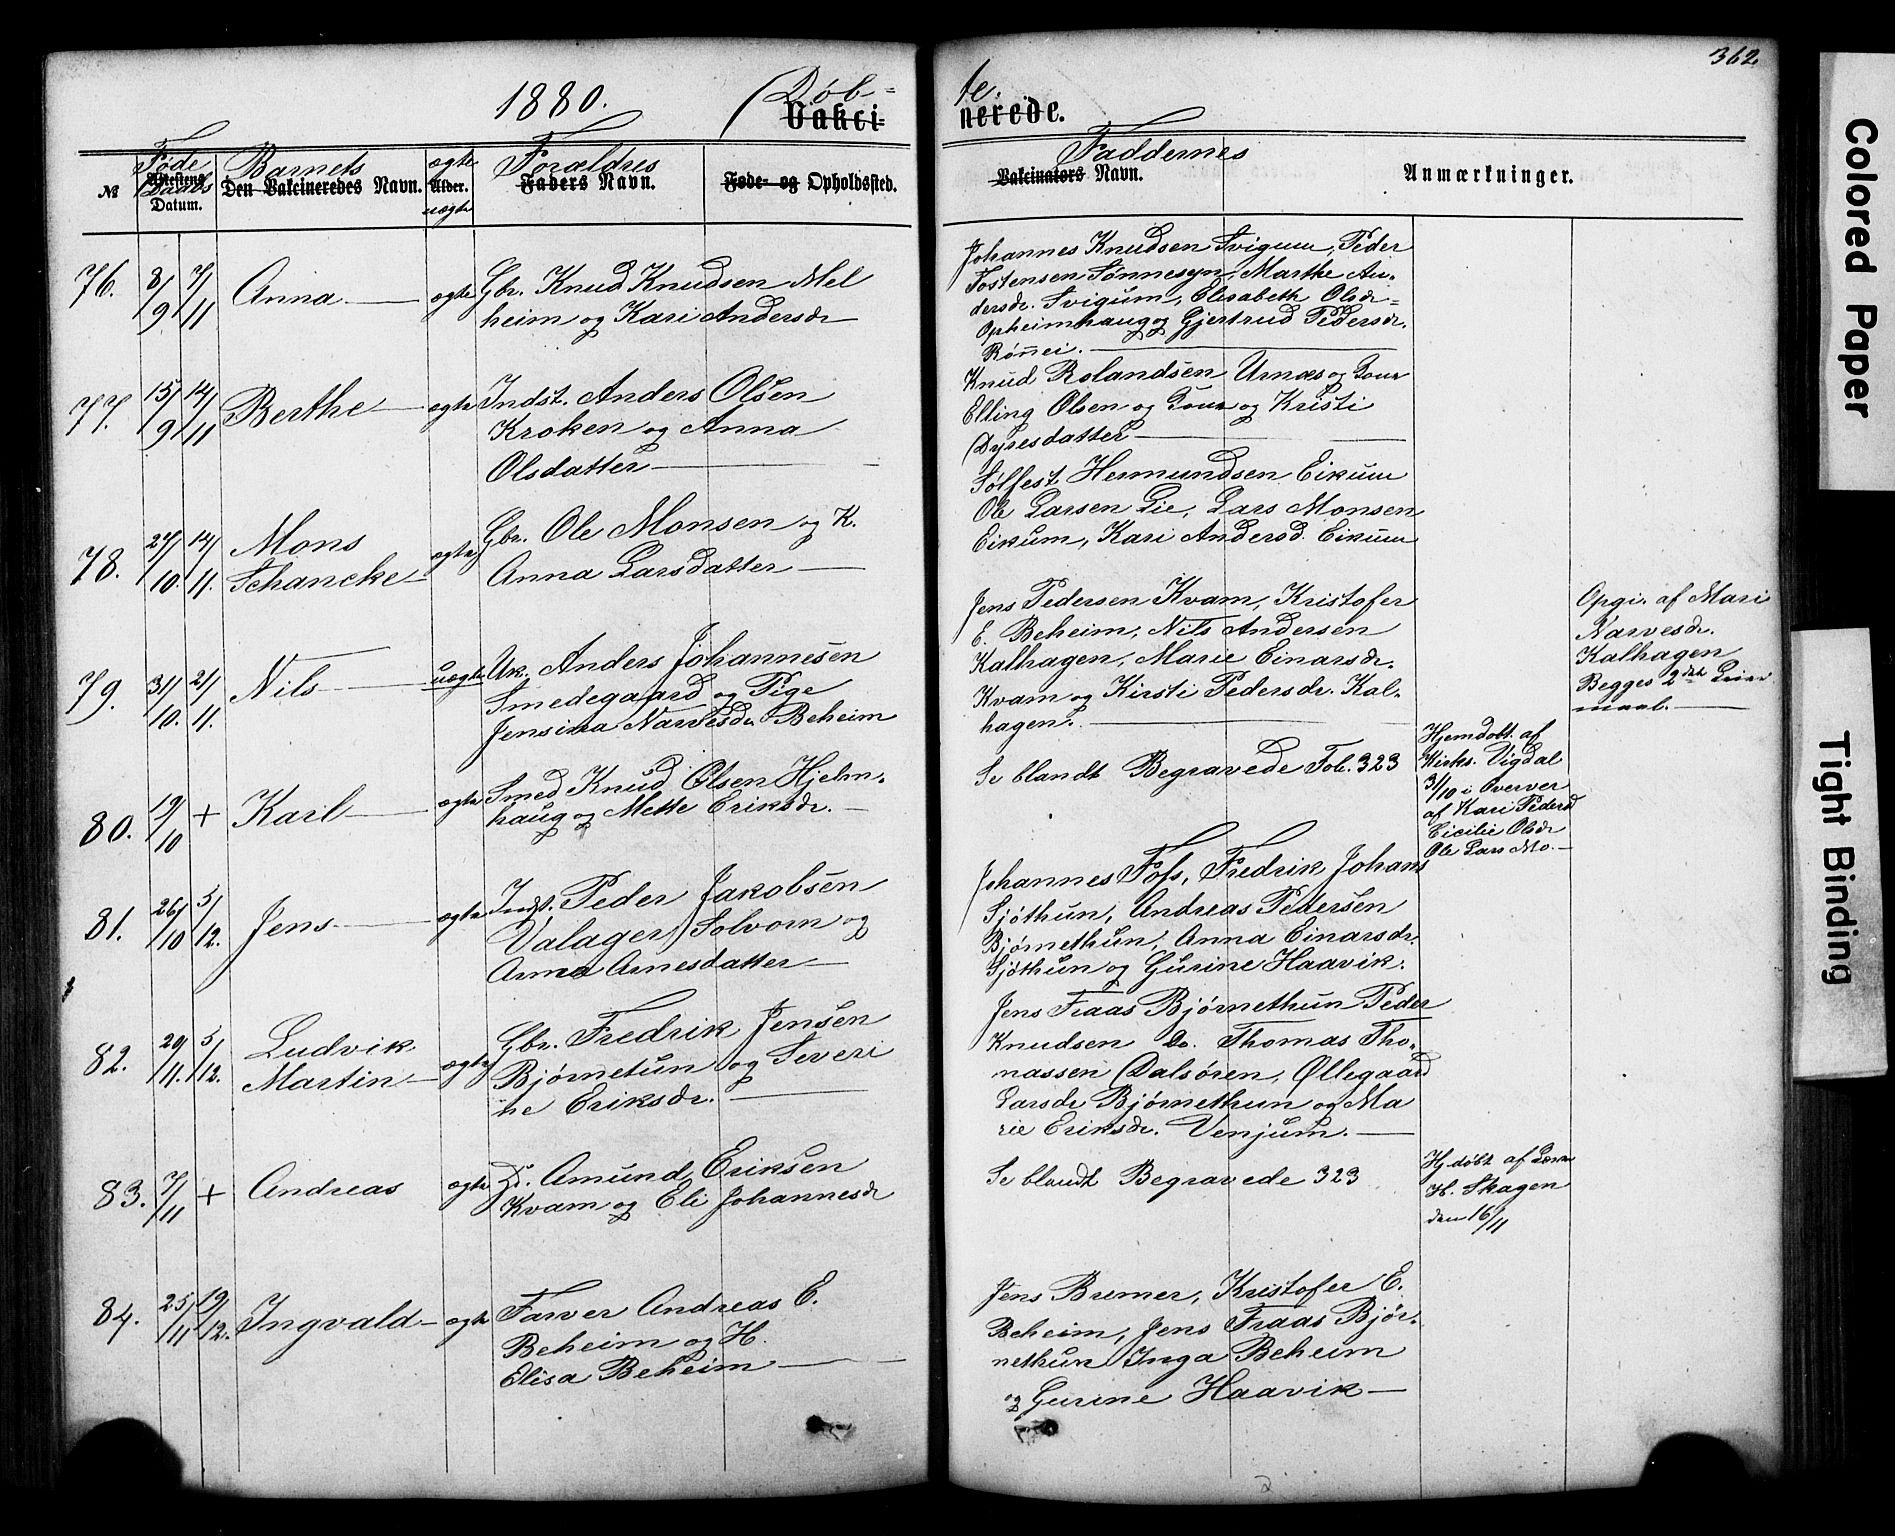 362
1880.
Døb=
te.
Vakci=
nerede.
№
Føde
Daabs
Attestens
Datum.
Barnets
Den Vakcineredes Navn.
ægte
Alder.
uægte
Forældres
Faders Navn.
Føde= og Opholdssted.
Faddernes
Vakcinators Navn.
Anmærkninger.
76. 8/9 7/11 Anna ægte Gbr. Knud Knudsen Mel
heim og Kari Andersdr
Johannes Knudsen Svigum, Peder
Tostensen Sønnesyn, Marthe An-
dersdr. Svigum, Elisabeth Olsdr=
Opheimhaug og Gjertrud Pedersdr.
Rønnei.
77. 15/9 14/11 Berthe ægte Indst. Anders Olsen
Kroken og Anna
Olsdatter
Knud Rolandsen Urnæs og
Elling Olsen og og Kristi
Dyresdatter
78. 27/10. 14/11. Mons
Schancke ægte Gbr. Ole Monsen og K.
Anna Larsdatter
Sølfest Hermundsen Eikum
Ole Larsen Lie, Lars Monsen
Eikum, Kari Andersd. Eikum
79. 31/10. 21/11. Nils uægte Uk. Anders Johannesen
Smedegaard og Pige
Jensina Narvesdr. Beheim
Jens Pedersen Kvam, Kristofer
E. Beheim, Nils Andersen
Kalhagen, Marie Einarsdr.
Kvam og Kirsti Pedersdr. Kal-
hagen.
Opgi. af Mari
Narvesdr.
Kalhagen
Begges 2det Leier
maal.
80. 19/10 + Karl ægte Smed Knud Olsen Hjelm-
haug og Mette Eriksdr.
Se blandt Begravede Fol. 323
Hjemdøbt af
Kirks. Vigdal
31/10 i Overver
af Kari Pedersd
Cicilie Olsdr
Ole Lars Mo.
81. 26/10 5/12. Jens ægte Indst. Peder Jakobsen
Valager, Solvorn og
Anna Arnesdatter
Johannes Foss, Fredrik Johans
Sjøthun, Andreas Pedersen
Bjørnethun, Anna Einarsdr.
Sjøthun og Gurine Haavik.
82. 20/11. 5/12. Ludvik
Martin ægte Gbr. Fredrik Jensen
Bjørnetun og Severi
ne Eriksdr.
Jens Fraas Bjørnethun Peder
Knudsen Do. Thomas Tho-
massen Dalsøren, Øllegaard
Larsdr Bjørnethun og Ma
rie Eriksdr. Venjum.
83. 7/11 + Andreas ægte Amund Eriksen
Kvam og Eli Johannesdr
Se blandt Begravede 323
Hj. døbt af
H. Skagen
den 16/11
84. 25/11 19/12. Ingvald ægte Farver Andreas E.
Beheim og H.
Elisa Beheim
Jens Bremer, Kristofer E.
Beheim, Jens Fraas Bjør-
nethun Inga Beheim
og Gurine Haavik
Colored Paper
Tight Binding